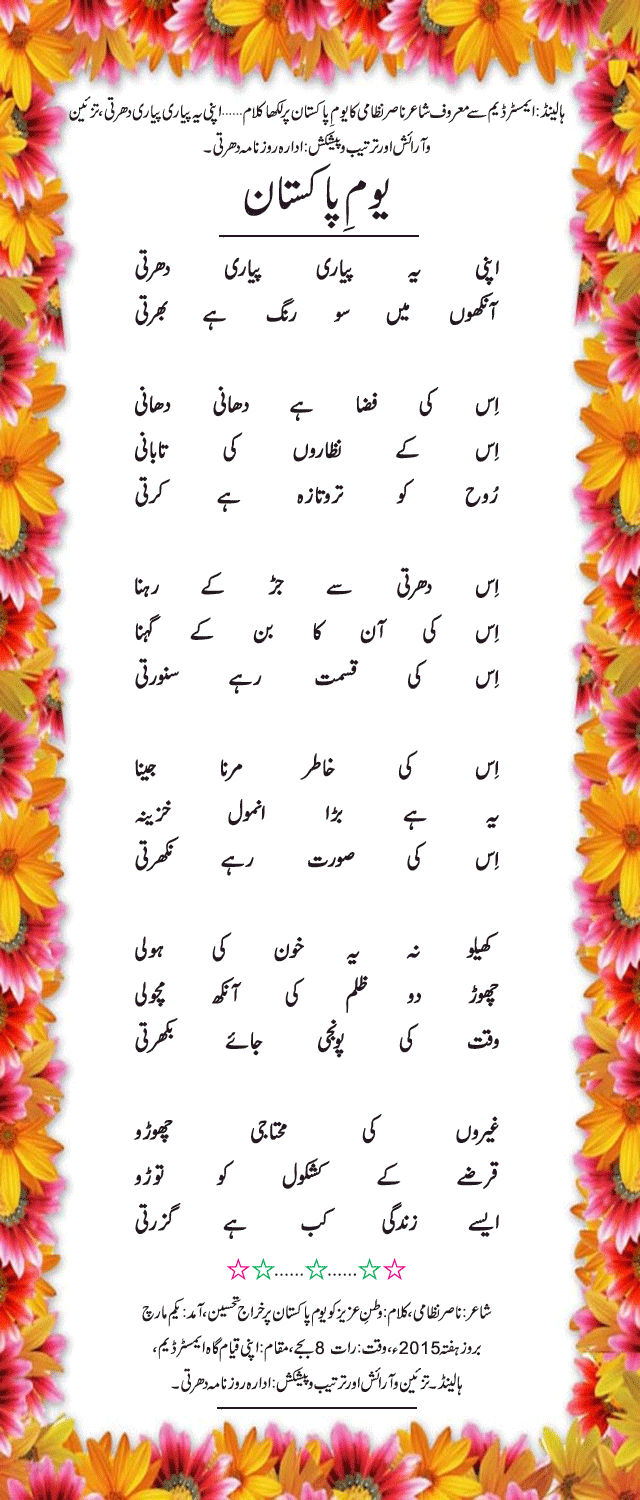 ہالینڈ: ایمسٹرڈیم سے معروف شاعر ناصر نظامی کا یومِ پاکستان پر لکھا کلام......اپنی یہ پیاری پیاری دھرتی، تزئین
و آرائش اور ترتیب و پیشکش: ادارہ روزنامہ دھرتی۔
یومِ پاکستان
اپنی یہ پیاری پیاری دھرتی
آنکھوں میں سو رنگ ہے بھرتی
اِس کی فضا ہے دھانی دھانی
اِس کے نظاروں کی تابانی
رُوح کو تروتازہ ہے کرتی
اِس دھرتی سے جڑ کے رہنا
اِس کی آن کا بن کے گہنا
اِس کی قسمت رہے سنورتی
اِس کی خاطر مرنا جینا
یہ ہے بڑا انمول خزینہ
اِس کی صورت رہے نکھرتی
کھیلو نہ یہ خون کی ہولی
چھوڑ دو ظلم کی آنکھ مچولی
وقت کی پونجی جائے بکھرتی
غیروں کی محتاجی چھوڑو
قرضے کے کشکول کو توڑو
ایسے زندگی کب ہے گزرتی
☆☆......☆......☆☆
شاعر: ناصر نظامی، کلام: وطنِ عزیز کو یومِ پاکستان پر خراجِ تحسین، آمد: یکم مارچ
بروز ہفتہ 2015ء، وقت: رات 8 بجے، مقام: اپنی قیام گاہ ایمسٹرڈیم،
ہالینڈ۔ تزئین و آرائش اور ترتیب و پیشکش: ادارہ روزنامہ دھرتی۔